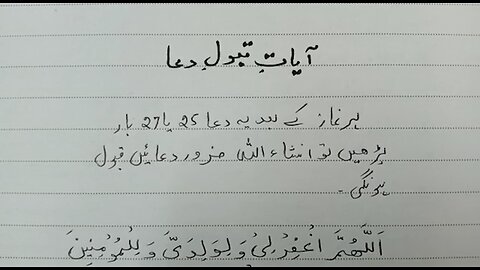 آیاتِ قبولِ دعا
ہر نماز کے بعد یہ دعا 25 یا 27 بار
پڑھیں تو انشاء اللہ ضرور دعائیں قبول
ہونگی۔
اَللّٰهُمَّ اغْفِرْلِیْ وَلِوَلِدَیَّ وَلِلْمُؤْمِنِیْنَ